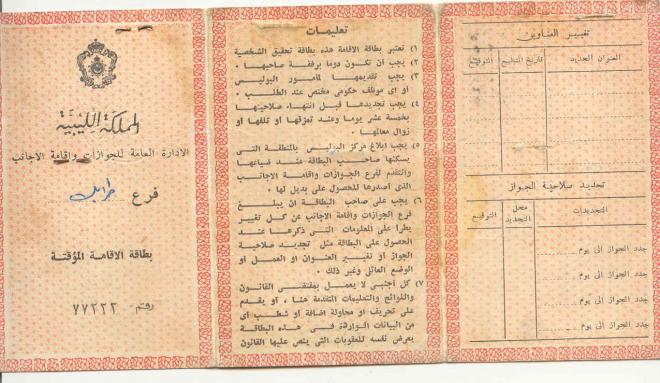 المملكة الليبية
الادارة العامة للجوازات واقامة الاجانب
فرع طرابلس
بطاقة الاقامة المؤقتة
رقم ٧٧٢٢٢
تعليمات
١) تعتبر بطاقة الاقامة هذه بطاقة تحقيق الشخصية
٢) يجب ان تكون دوما برفقة صاحبها .
٣) يجب تقديمها لمأمور البوليس
أو اى موظف حكومى مختص عند الطلب .
٤) يجب تجديدها قبل انتهاء صلاحيتها
بخمسة عشر يوما وعند تمزقها او تلفها او
زوال معالمها .
٥) يجب ابلاغ مركز البوليس بالمنطقة التى
يسكنها صاحب البطاقة عند ضياعها
والتقدم لفرع الجوازات واقامة الاجانب
الذى اصدرها للحصول على بديل لها .
٦) يجب على صاحب البطاقة ان يبلغ
فرع الجوازات واقامة الاجانب عن كل تغيير
يطرأ على المعلومات التى ذكرها عند
الحصول على البطاقة مثل تجديد صلاحية
الجواز أو تغيير العنوان او العمل أو
الوضع العائلى وغير ذلك .
٧) كل أجنبى لا يعمل بمقتضى القانون
واللوائح والتعليمات المتقدمة هنا ، او يقدم
على تحريف او محاولة اضافة او شطب اى
من البيانات الواردة فى هذه البطاقة
يعرض نفسه للعقوبات التى ينص عليها القانون
تغيير العناوين
العنوان الجديد تاريخ التبليغ التوقيع
تجديد صلاحية الجواز
التجديدات محل التجديد التوقيع
جدد الجواز الى يوم
جدد الجواز الى يوم
جدد الجواز الى يوم
جدد الجواز الى يوم